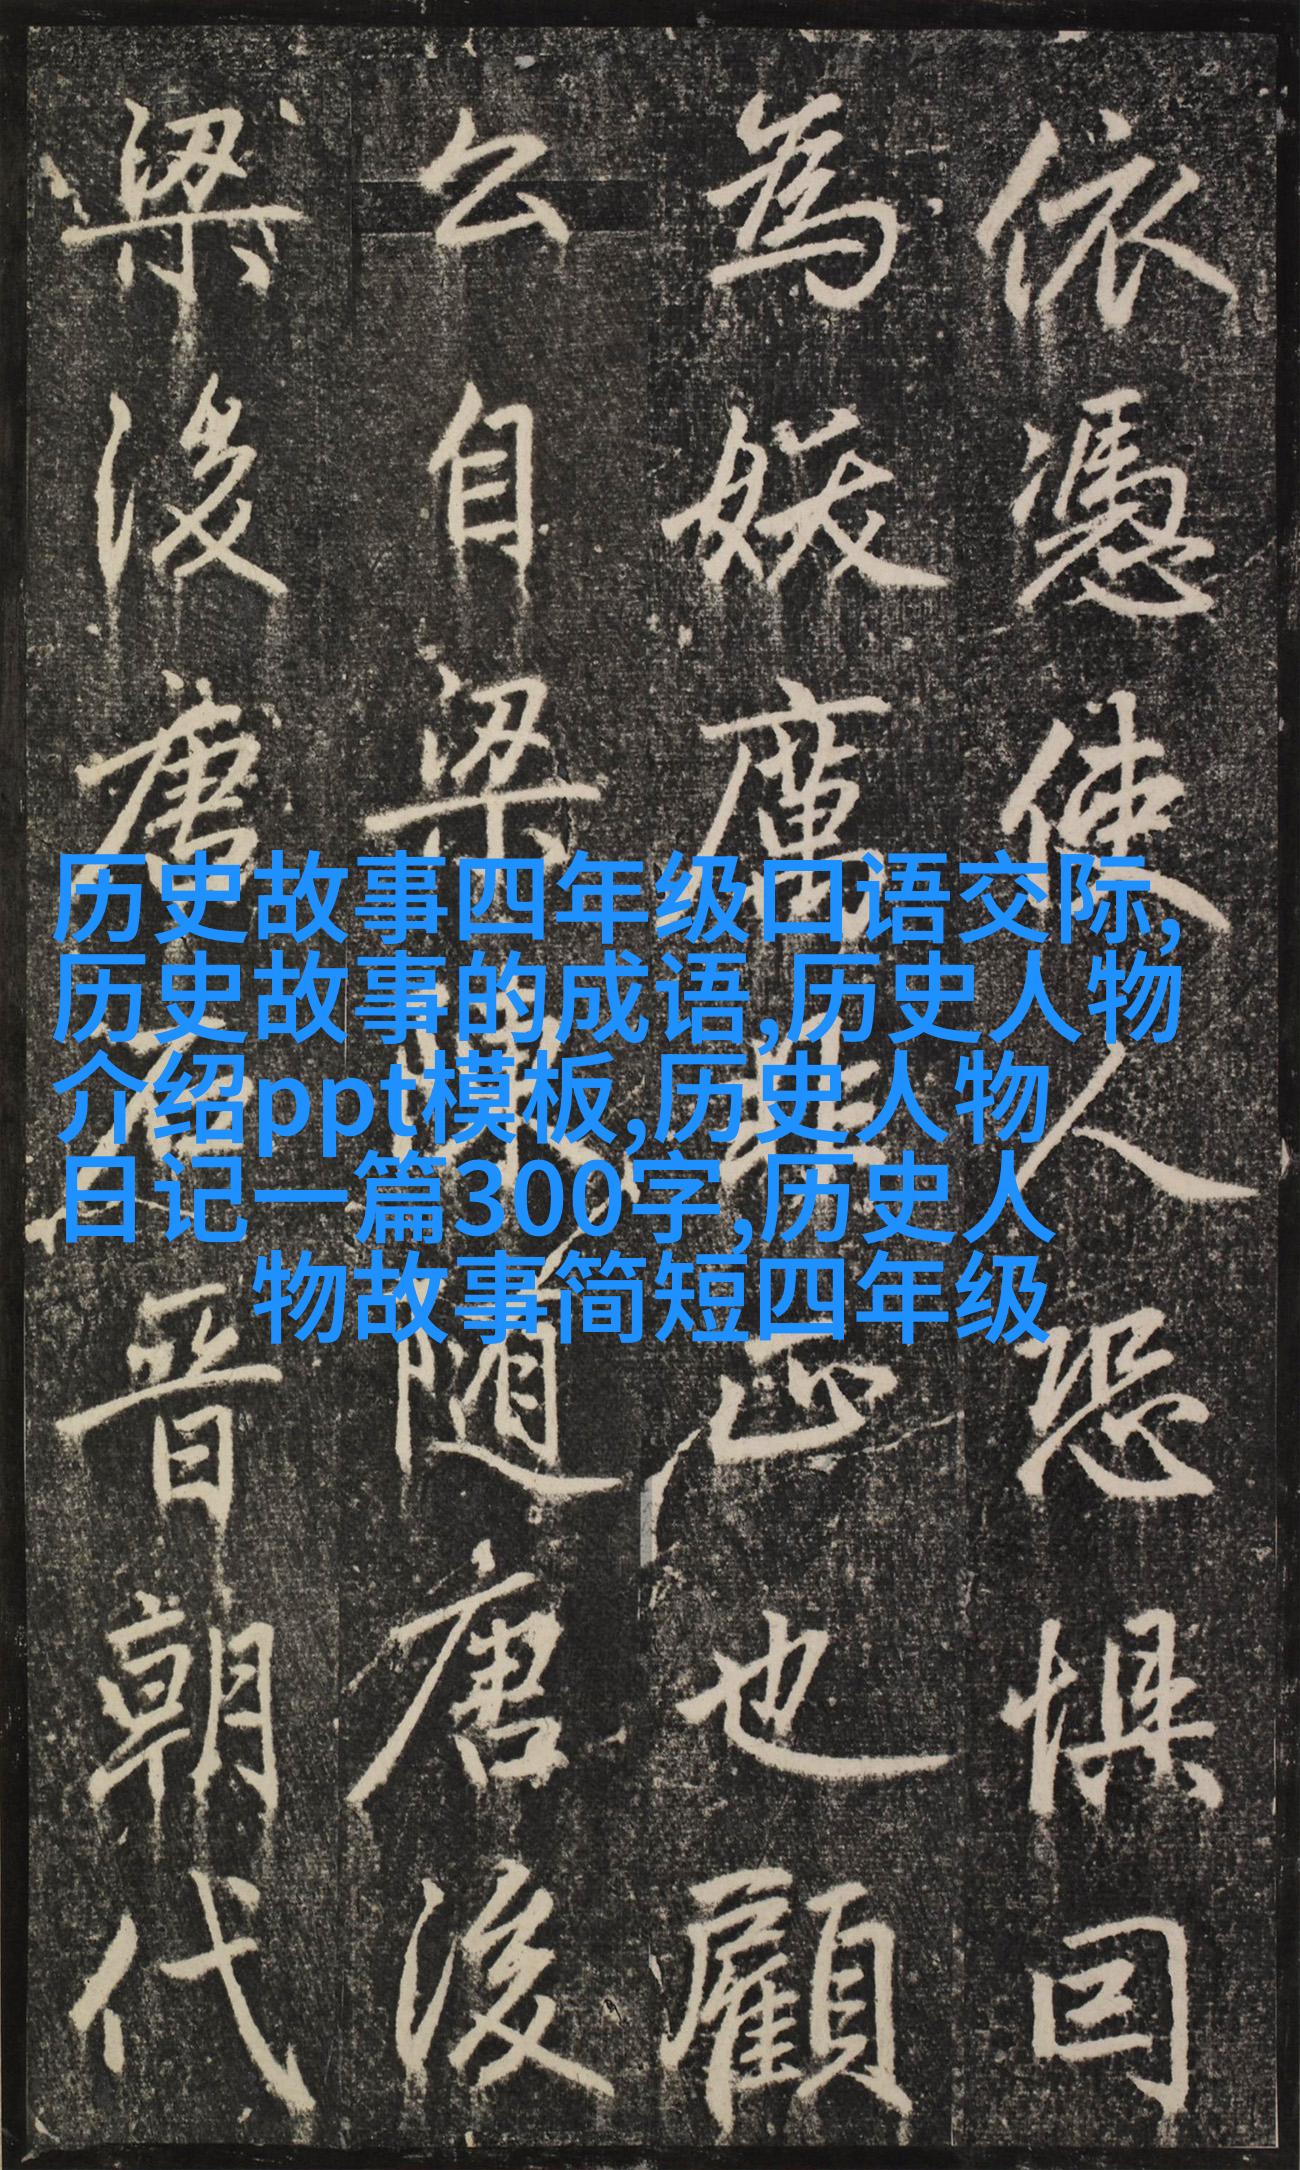 依憑使人恐懼囙
為妖非正也顧
公自梁隨唐後
梁後唐石晉朝代
历史故事四年级口语交际,
历史故事的成语,历史人物
介绍ppt模板,历史人物
日记一篇300字,历史人
物故事简短四年级